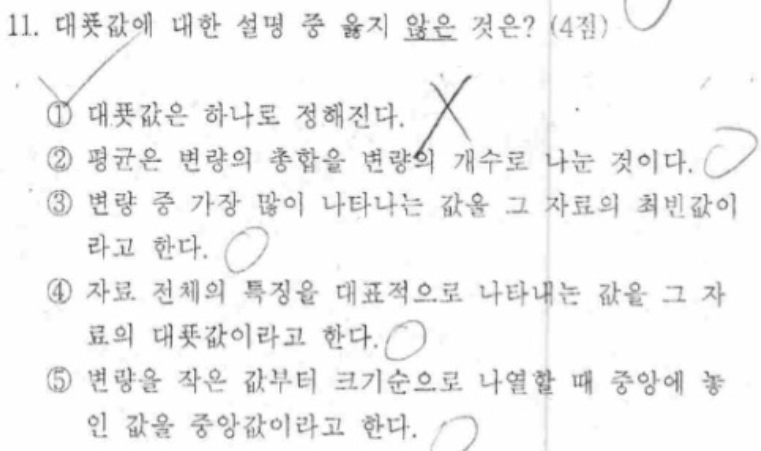 11. 대푯값에 대한 설명 중 옳지 않은 것은? (4점)
① 대푯값은 하나로 정해진다.
② 평균은 변량의 총합을 변량의 개수로 나눈 것이다.
③ 변량 중 가장 많이 나타나는 값을 그 자료의 최빈값이
라고 한다.
④ 자료 전체의 특징을 대표적으로 나타내는 값을 그 자
료의 대푯값이라고 한다.
⑤ 변량을 작은 값부터 크기순으로 나열할 때 중앙에 놓
인 값을 중앙값이라고 한다.